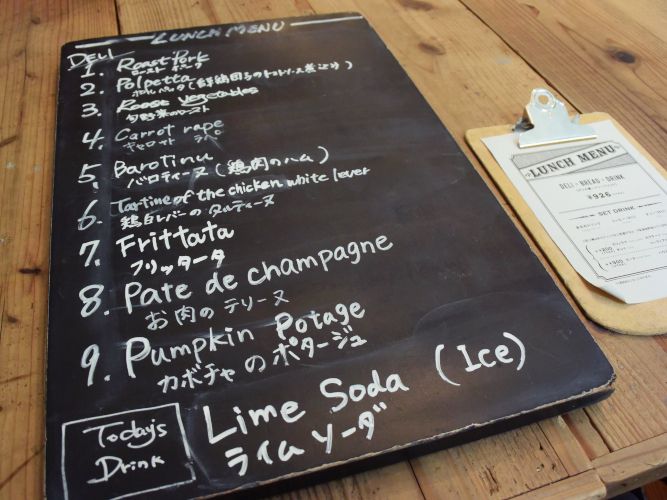 LUNCH MENU
DELI
1. Roast Pork
ローストポーク
2. Polpetta
ポルペッタ(鶏団子のトマトソース煮込み)
3. Roast vegetables
旬野菜のロースト
4. Carrot rape
キャロット ラペ
5. Barotinu
バロティーヌ(鶏肉のハム)
6. Tartine of the chicken white lever
鶏白レバーのタルティーヌ
7. Frittata
フリッタータ
8. Pate de champagne
お肉のテリーヌ
9. Pumpkin Potage
カボチャのポタージュ
Today's
Drink
Lime Soda (Ice)
ライムソーダ
LUNCH MENU
DELI + BREAD + DRINK
¥926
SET DRINK